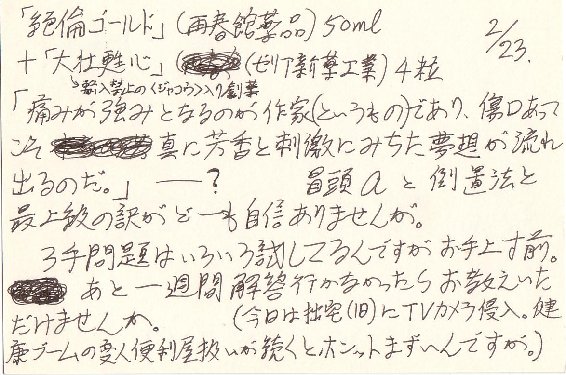 「絶倫ゴールド」(再春館薬品) 50ml 2/23.
+「大壮甦心」 (ゼリア新薬工業) 4粒
↳輸入禁止の〈ジャコウ〉入り創業
「痛みが強みとなるのが作家(というもの)であり、傷口あって
こそ 真に芳香と刺激にみちた夢想が流れ
出るのだ。」 ―? 冒頭aと倒置法と
最上級の訳がどーも自信ありませんが。
3手問題はいろいろ試してるんですがお手上寸前。
あと一週間解答行かなかったらお教えいた
だけませんか。 (今日は拙宅(旧)にTVカメラ侵入。健
康ブームの変人便利屋扱いが続くとホンットまずいんですが。)